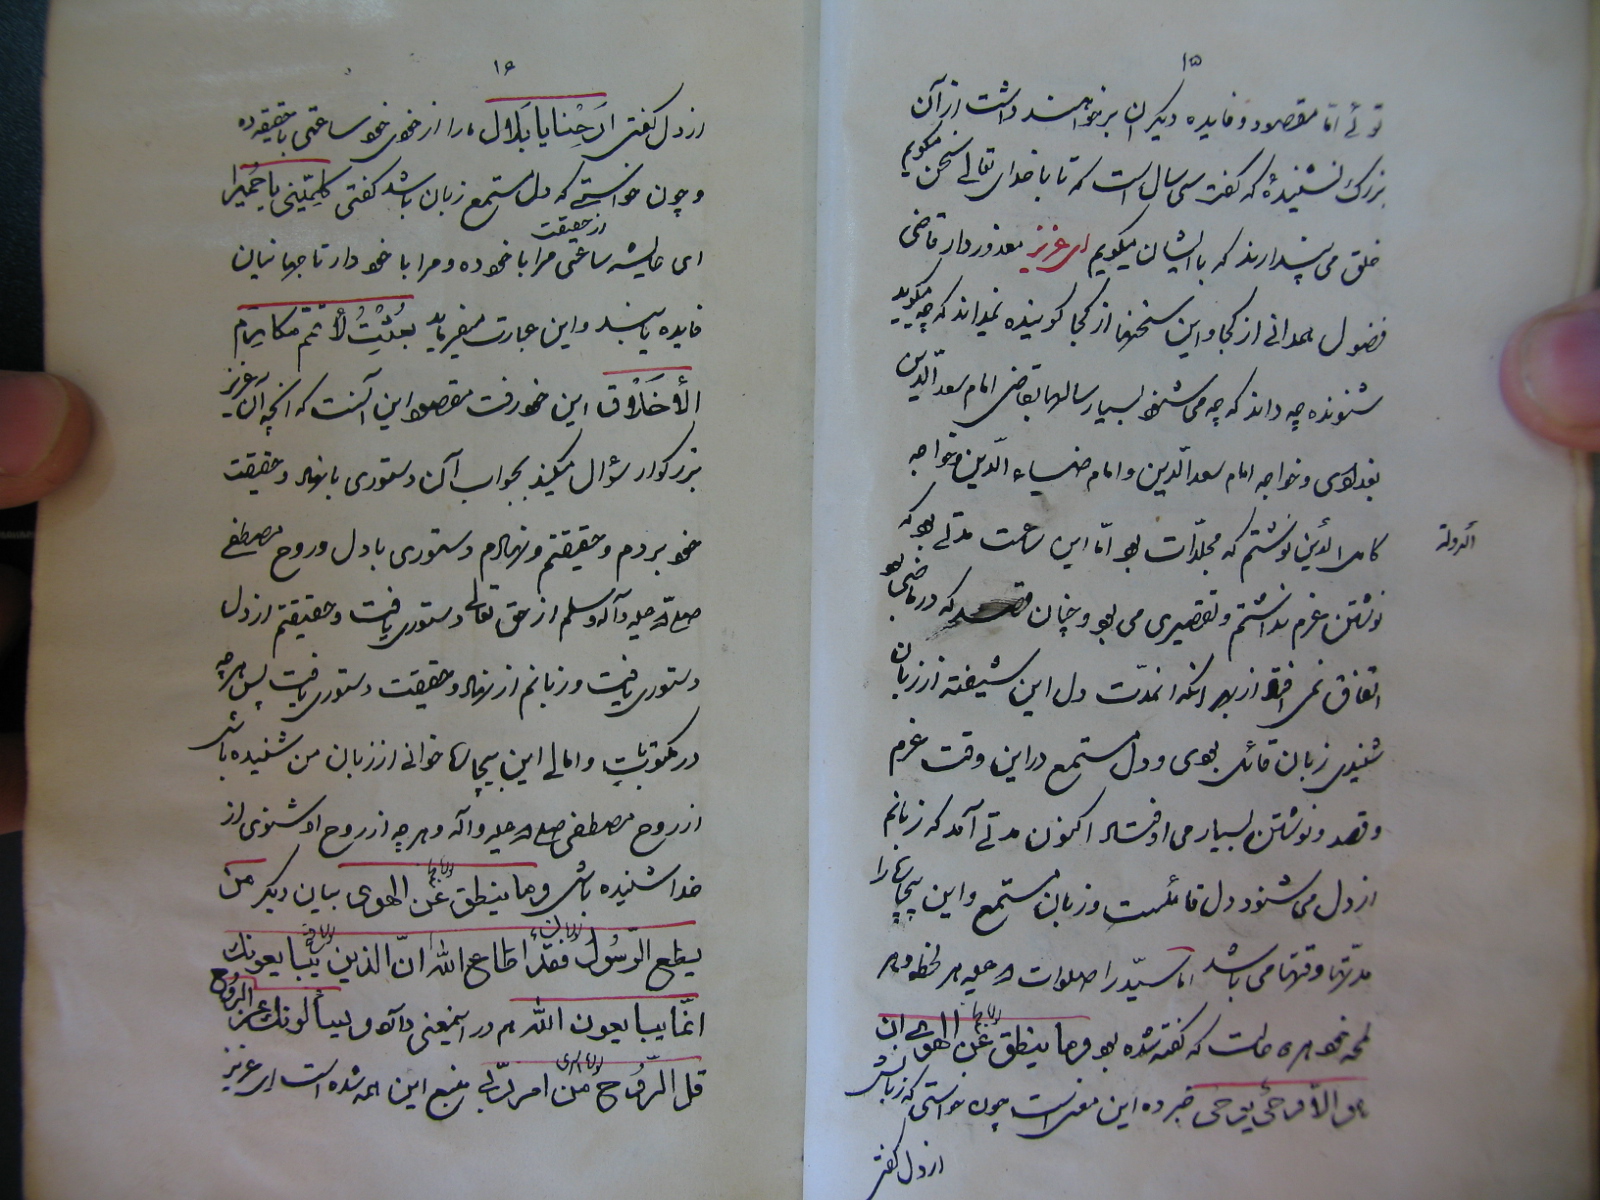 ۱۵
توئی اما مقصود و فایده دیگران برخواهند داشت از آن
بزرگ نشنیدهٔ که گفت سی سال است که تا با خدای تعالی سخن میگویم
خلق می پندارند که با ایشان میگویم ای عزیز معذور دار قاضی
فضول همدانی از کجا و این سخنها از کجا گوینده نمیداند که چه میگوید
شنونده چه داند که چه می شنود بسیار رسالها بقاضی امام سعد الدین
بغدادی و خواجه امام سعد الدین و امام ضیاء الدین و خواجه
کامل الدین نوشتم که مجلدات بود اما این ساعت مدتی بود که
الدوله
نوشتن عزم نداشتم و تقصیری می بود و چنان قصد که در ماضی بود
اتفاق نمی افتد از بهر آنکه اندّت دل این شیفته از زبان
شنیدی زبان قائل بودی و دل مستمع در این وقت عزم
و قصد و نوشتن بسیار می اوفتاد اکنون مدتی آمد که زبانم
از دل می شنود دل قائلست و زبان مستمع و این بیچاره را
مدتها وقتها می باشد اما سید را صلوات الله علیه هر لحظه و هر
لمحه خود همه حالت که گفته شده بود وما ینطق عن الهوی ان
هو الا وحی یوحی خبر ده این معنی است چون خواستی که زبانش
از دل گفتی
۱۶
از دل گفتی اَرِحْنا یا بلال ما را از خودی خود ساعتی با حقیقت ده
و چون خواستی که دل مستمع زبان باشد گفتی کلّمینی یا حُمیرا
ای عایشه ساعتی مرا از حقیقت با خود ده و مرا با خود دار تا جهانیان
فایده یابند و این عبارت میفرماید بُعِثْتُ لأُتمّم مکارم
الأخلاق این خود رفت مقصود این آنست که آنچه آن عزیز
بزرگوار سؤال میکند بجواب آن دستوری با نهاد و حقیقت
خود بردم و حقیقتم و نهادم دستوری با دل و روح مصطفی
صلی الله علیه و آله و سلم از حق تعالی دستوری یافت و حقیقتم از دل
دستوری یافت و زبانم از نهاد و حقیقت دستوری یافت پس هر چه
در مکتوبات و امالی این بیچاره خوانی از زبان من شنیده باشی
از روح مصطفی صلی الله علیه و آله و هر چه از روح او شنوی از
خدا شنیده باشی وما ینطق عن الهوی بیان دیگر من
یطع الرّسول فقد اطاع الله انّ الذین یبایعونک
انّما یبایعون الله هم در این معنی دان و یسألونک عن الروح
قل الرّوح من امر ربّی منبع این همه شده است ای عزیز